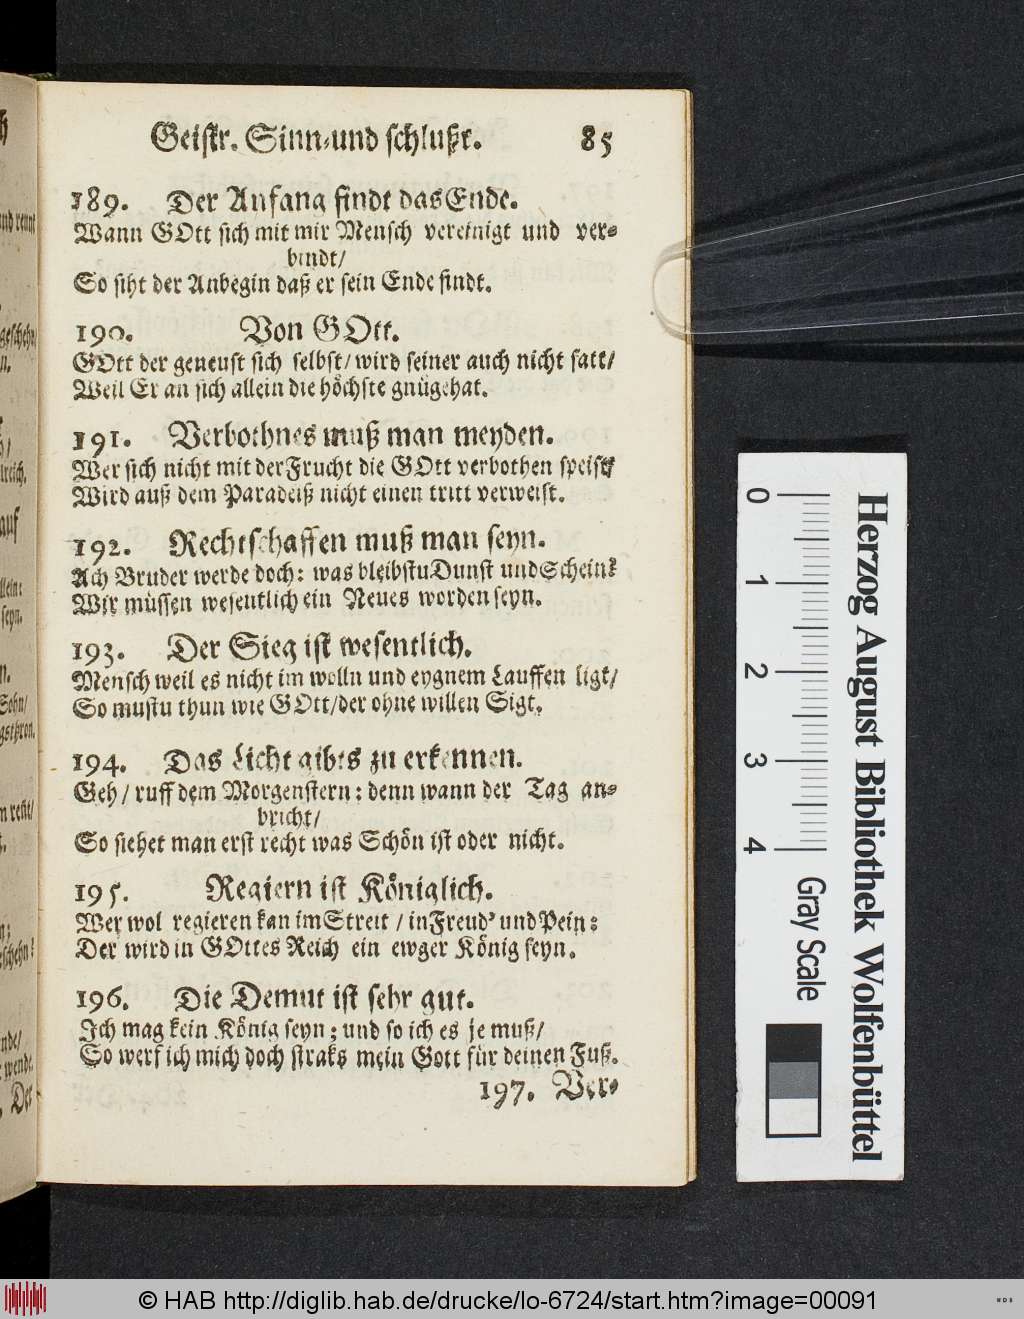 Geistr. Sinn-und schlußr. 85
189. Der Anfang findt das Ende.
Wann GOtt sich mit mir Mensch vereinigt und ver-
bindt/
So siht der Anbegin daß er sein Ende findt.
190. Von GOtt.
GOtt der geneust sich selbst/ wird seiner auch nicht satt/
Weil Er an sich allein die höchste gnüge hat.
191. Verbothnes muß man meyden.
Wer sich nicht mit der Frucht die GOtt verbothen speist
Wird auß dem Paradeiß nicht einen tritt verweist.
192. Rechtschaffen muß man seyn.
Ach Bruder werde doch: was bleibstu Dunst und Schein?
Wir müssen wesentlich ein Neues worden seyn.
193. Der Sieg ist wesentlich.
Mensch weil es nicht im wolln und eygnem Lauffen ligt/
So mustu thun wie GOtt/ der ohne willen Sigt.
194. Das Licht gibts zu erkennen.
Geh/ ruff dem Morgenstern: denn wann der Tag an-
bricht/
So siehet man erst recht was Schön ist oder nicht.
195. Regiern ist Königlich.
Wer wol regieren kan im Streit / in Freud' und Pein:
Der wird in GOttes Reich ein ewger König seyn.
196. Die Demut ist sehr gut.
Ich mag kein König seyn; und so ich es je muß/
So werf ich mich doch straks mein Gott für deinen Fuß.
197. Ver-
Herzog August Bibliothek Wolfenbüttel
0 1 2 3 4
Gray Scale
© HAB http://diglib.hab.de/drucke/lo-6724/start.htm?image=00091